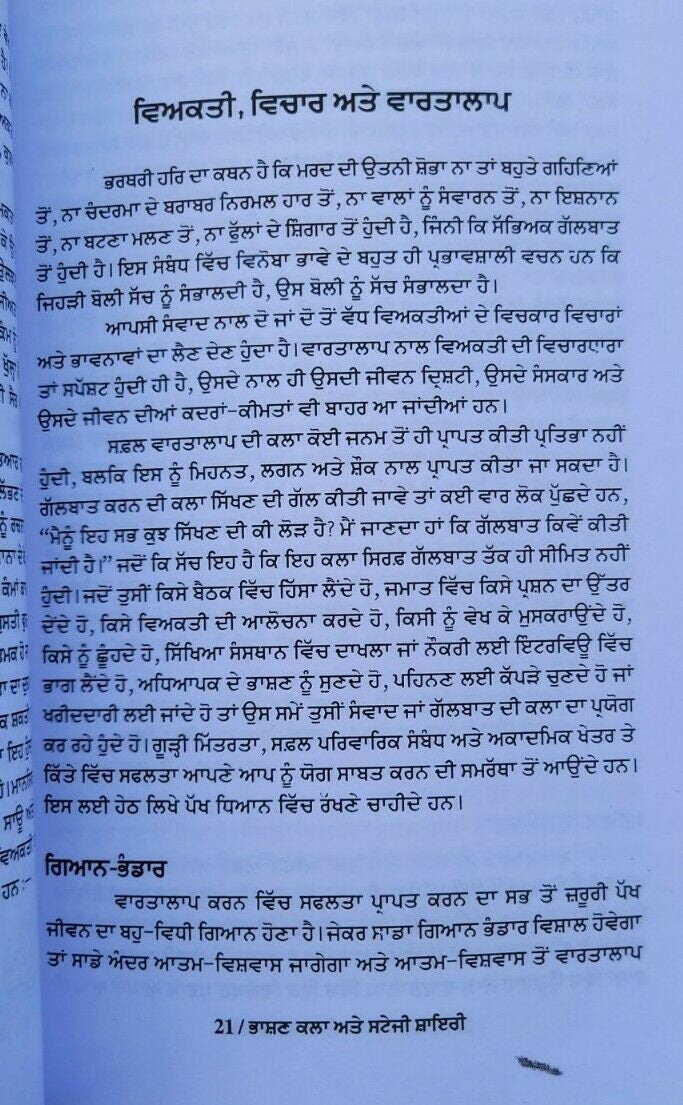 ਵਿਅਕਤੀ, ਵਿਚਾਰ ਅਤੇ ਵਾਰਤਾਲਾਪ
ਭਰਥਰੀ ਹਰਿ ਦਾ ਕਥਨ ਹੈ ਕਿ ਮਰਦ ਦੀ ਉਤਨੀ ਸ਼ੋਭਾ ਨਾ ਤਾਂ ਬਹੁਤੇ ਗਹਿਣਿਆਂ
ਤੋਂ, ਨਾ ਚੰਦਰਮਾ ਦੇ ਬਰਾਬਰ ਨਿਰਮਲ ਹਾਰ ਤੋਂ, ਨਾ ਵਾਲਾਂ ਨੂੰ ਸੰਵਾਰਨ ਤੋਂ, ਨਾ ਇਸ਼ਨਾਨ
ਤੋਂ, ਨਾ ਬਟਣਾ ਮਲਣ ਤੋਂ, ਨਾ ਫੁੱਲਾਂ ਦੇ ਸ਼ਿੰਗਾਰ ਤੋਂ ਹੁੰਦੀ ਹੈ, ਜਿੰਨੀ ਕਿ ਸੱਭਿਅਕ ਗੱਲਬਾਤ
ਤੋਂ ਹੁੰਦੀ ਹੈ। ਇਸ ਸੰਬੰਧ ਵਿੱਚ ਵਿਨੋਬਾ ਭਾਵੇ ਦੇ ਬਹੁਤ ਹੀ ਪ੍ਰਭਾਵਸ਼ਾਲੀ ਵਚਨ ਹਨ ਕਿ
ਜਿਹੜੀ ਬੋਲੀ ਸੱਚ ਨੂੰ ਸੰਭਾਲਦੀ ਹੈ, ਉਸ ਬੋਲੀ ਨੂੰ ਸੱਚ ਸੰਭਾਲਦਾ ਹੈ।
ਆਪਸੀ ਸੰਵਾਦ ਨਾਲ ਦੋ ਜਾਂ ਦੋ ਤੋਂ ਵੱਧ ਵਿਅਕਤੀਆਂ ਦੇ ਵਿਚਕਾਰ ਵਿਚਾਰਾਂ
ਅਤੇ ਭਾਵਨਾਵਾਂ ਦਾ ਲੈਣ ਦੇਣ ਹੁੰਦਾ ਹੈ। ਵਾਰਤਾਲਾਪ ਨਾਲ ਵਿਅਕਤੀ ਦੀ ਵਿਚਾਰਧਾਰਾ
ਤਾਂ ਸਪੱਸ਼ਟ ਹੁੰਦੀ ਹੀ ਹੈ, ਉਸਦੇ ਨਾਲ ਹੀ ਉਸਦੀ ਜੀਵਨ ਦ੍ਰਿਸ਼ਟੀ, ਉਸਦੇ ਸੰਸਕਾਰ ਅਤੇ
ਉਸਦੇ ਜੀਵਨ ਦੀਆਂ ਕਦਰਾਂ-ਕੀਮਤਾਂ ਵੀ ਬਾਹਰ ਆ ਜਾਂਦੀਆਂ ਹਨ।
ਸਫ਼ਲ ਵਾਰਤਾਲਾਪ ਦੀ ਕਲਾ ਕੋਈ ਜਨਮ ਤੋਂ ਹੀ ਪ੍ਰਾਪਤ ਕੀਤੀ ਪ੍ਰਤਿਭਾ ਨਹੀਂ
ਹੁੰਦੀ, ਬਲਕਿ ਇਸ ਨੂੰ ਮਿਹਨਤ, ਲਗਨ ਅਤੇ ਸ਼ੌਕ ਨਾਲ ਪ੍ਰਾਪਤ ਕੀਤਾ ਜਾ ਸਕਦਾ ਹੈ।
ਗੱਲਬਾਤ ਕਰਨ ਦੀ ਕਲਾ ਸਿੱਖਣ ਦੀ ਗੱਲ ਕੀਤੀ ਜਾਵੇ ਤਾਂ ਕਈ ਵਾਰ ਲੋਕ ਪੁੱਛਦੇ ਹਨ,
“ਮੈਨੂੰ ਇਹ ਸਭ ਕੁਝ ਸਿੱਖਣ ਦੀ ਕੀ ਲੋੜ ਹੈ? ਮੈਂ ਜਾਣਦਾ ਹਾਂ ਕਿ ਗੱਲਬਾਤ ਕਿਵੇਂ ਕੀਤੀ
ਜਾਂਦੀ ਹੈ।” ਜਦੋਂ ਕਿ ਸੱਚ ਇਹ ਹੈ ਕਿ ਇਹ ਕਲਾ ਸਿਰਫ਼ ਗੱਲਬਾਤ ਤੱਕ ਹੀ ਸੀਮਿਤ ਨਹੀਂ
ਹੁੰਦੀ। ਜਦੋਂ ਤੁਸੀਂ ਕਿਸੇ ਬੈਠਕ ਵਿੱਚ ਹਿੱਸਾ ਲੈਂਦੇ ਹੋ, ਜਮਾਤ ਵਿੱਚ ਕਿਸੇ ਪ੍ਰਸ਼ਨ ਦਾ ਉੱਤਰ
ਦੇਂਦੇ ਹੋ, ਕਿਸੇ ਵਿਅਕਤੀ ਦੀ ਆਲੋਚਨਾ ਕਰਦੇ ਹੋ, ਕਿਸੀ ਨੂੰ ਵੇਖ ਕੇ ਮੁਸਕਰਾਉਂਦੇ ਹੋ,
ਕਿਸੇ ਨੂੰ ਛੂੰਹਦੇ ਹੋ, ਸਿੱਖਿਆ ਸੰਸਥਾਨ ਵਿੱਚ ਦਾਖਲਾ ਜਾਂ ਨੌਕਰੀ ਲਈ ਇੰਟਰਵਿਊ ਵਿੱਚ
ਭਾਗ ਲੈਂਦੇ ਹੋ, ਅਧਿਆਪਕ ਦੇ ਭਾਸ਼ਣ ਨੂੰ ਸੁਣਦੇ ਹੋ, ਪਹਿਨਣ ਲਈ ਕੱਪੜੇ ਚੁਣਦੇ ਹੋ ਜਾਂ
ਖਰੀਦਦਾਰੀ ਲਈ ਜਾਂਦੇ ਹੋ ਤਾਂ ਉਸ ਸਮੇਂ ਤੁਸੀਂ ਸੰਵਾਦ ਜਾਂ ਗੱਲਬਾਤ ਦੀ ਕਲਾ ਦਾ ਪ੍ਰਯੋਗ
ਕਰ ਰਹੇ ਹੁੰਦੇ ਹੋ। ਗੂੜ੍ਹੀ ਮਿੱਤਰਤਾ, ਸਫ਼ਲ ਪਰਿਵਾਰਿਕ ਸੰਬੰਧ ਅਤੇ ਅਕਾਦਮਿਕ ਖੇਤਰ ਤੇ
ਕਿੱਤੇ ਵਿੱਚ ਸਫਲਤਾ ਆਪਣੇ ਆਪ ਨੂੰ ਯੋਗ ਸਾਬਤ ਕਰਨ ਦੀ ਸਮਰੱਥਾ ਤੋਂ ਆਉਂਦੇ ਹਨ।
ਇਸ ਲਈ ਹੇਠ ਲਿਖੇ ਪੱਖ ਧਿਆਨ ਵਿੱਚ ਰੱਖਣੇ ਚਾਹੀਦੇ ਹਨ।
ਗਿਆਨ-ਭੰਡਾਰ
ਵਾਰਤਾਲਾਪ ਕਰਨ ਵਿੱਚ ਸਫਲਤਾ ਪ੍ਰਾਪਤ ਕਰਨ ਦਾ ਸਭ ਤੋਂ ਜ਼ਰੂਰੀ ਪੱਖ
ਜੀਵਨ ਦਾ ਬਹੁ-ਵਿਧੀ ਗਿਆਨ ਹੋਣਾ ਹੈ। ਜੇਕਰ ਸਾਡਾ ਗਿਆਨ ਭੰਡਾਰ ਵਿਸ਼ਾਲ ਹੋਵੇਗਾ
ਤਾਂ ਸਾਡੇ ਅੰਦਰ ਆਤਮ-ਵਿਸ਼ਵਾਸ ਜਾਗੇਗਾ ਅਤੇ ਆਤਮ-ਵਿਸ਼ਵਾਸ ਤੋਂ ਵਾਰਤਾਲਾਪ
21/ ਭਾਸ਼ਣ ਕਲਾ ਅਤੇ ਸਟੇਜੀ ਸ਼ਾਇਰੀ